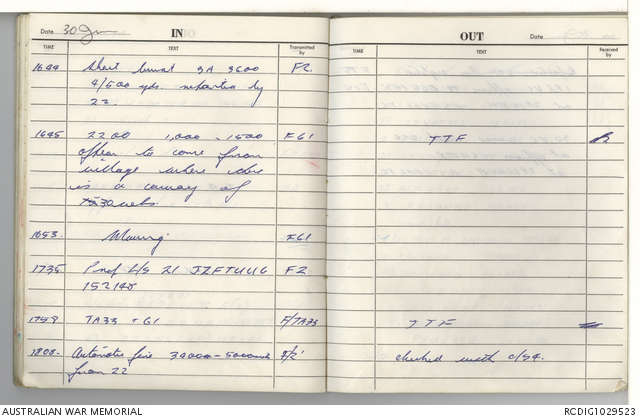 Date 30 Jun IN
TIME TEXT Transmitted by
1644 Short burst SA 3600 F2
4/500 yds. reported by
22.
1645 2200 1,000 - 1500 F61
appear to come from
village where there
is a convoy of
30
1653 F61
1735 L/S 21 JZFTUUG F2
152140
1759 TA33 + 61 F/TA33
1808 Automatic fire F/2
from 22
OUT Date
TIME TEXT Received by
TTF
TTF
checked with
AUSTRALIAN WAR MEMORIAL
RCDIG1029523